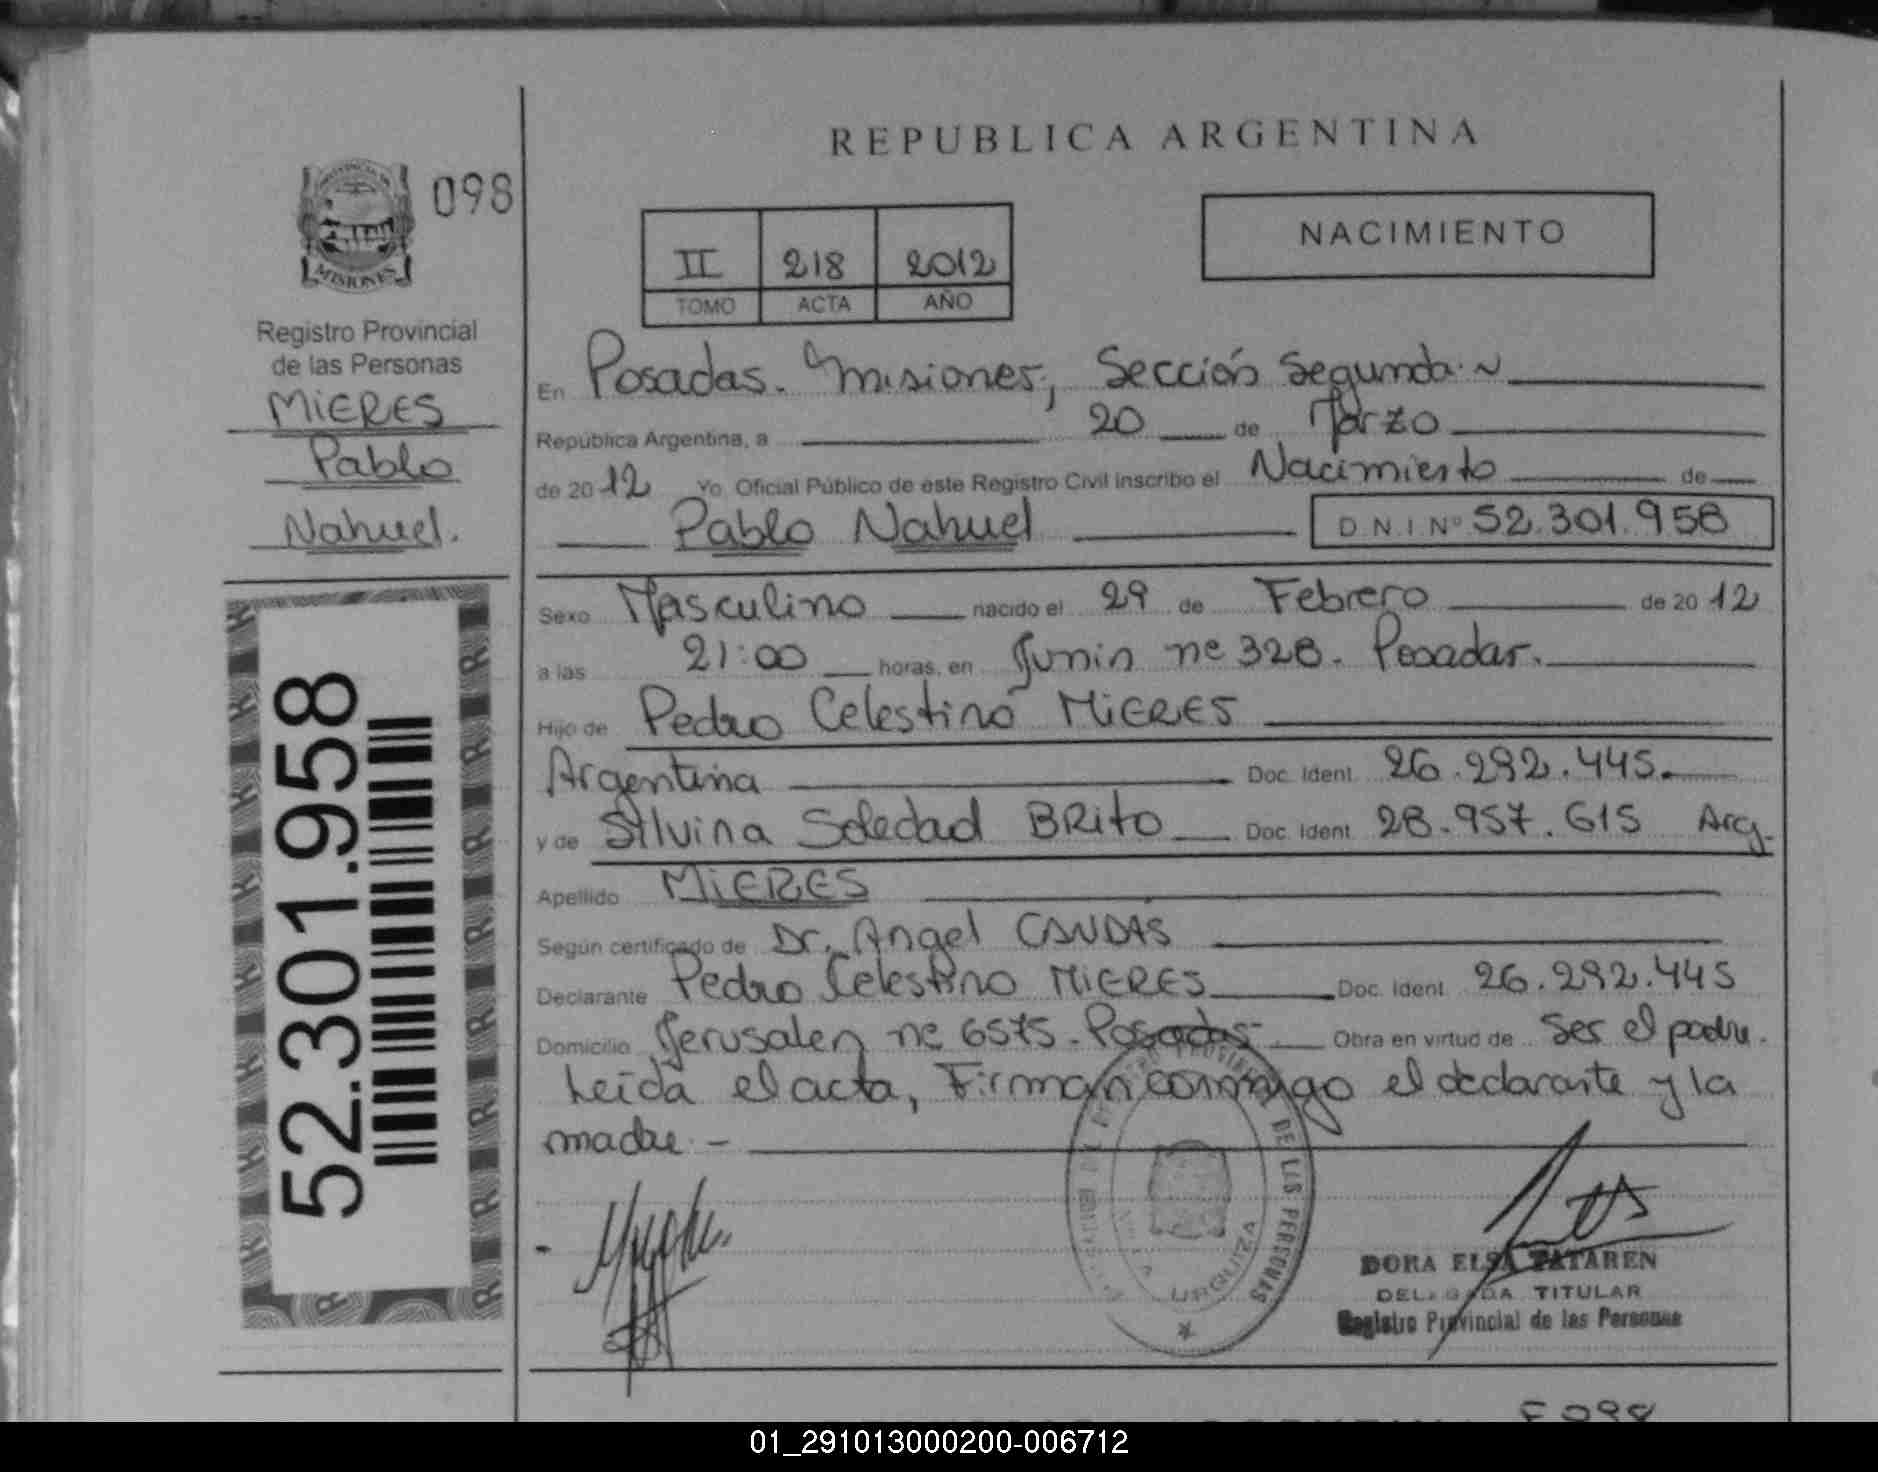 REPUBLICA ARGENTINA
098
PROVINCIA DE
MISIONES
Registro Provincial
de las Personas
MIERES
Pablo
Nahuel.
52.301.958
II 218 2012
TOMO ACTA AÑO
NACIMIENTO
En Posadas. Misiones, Sección Segunda.
República Argentina, a 20 de Marzo
de 2012 Yo Oficial Público de este Registro Civil inscribo el Nacimiento de
Pablo Nahuel D.N.I. Nº 52.301.958
Sexo Masculino nacido el 29 de Febrero de 2012
a las 21:00 horas, en Junin nº 328. Posadas.
Hijo de Pedro Celestino MIERES
Argentina Doc. Ident. 26.292.445.
y de Silvina Soledad BRITO Doc. Ident. 28.957.615 Arg.
Apellido MIERES
Según certificado de Dr. Angel CANDAS
Declarante Pedro Celestino MIERES Doc. Ident. 26.292.445
Domicilio Jerusalen nº 6575. Posadas Obra en virtud de Ser el padre.
Leida el acta, Firman conmigo el declarante y la
madre. -
DE LAS PERSONAS
URQUIZA
DORA ELSA TATAREN
DELEGADA TITULAR
Registro Provincial de las Personas
01_291013000200-006712